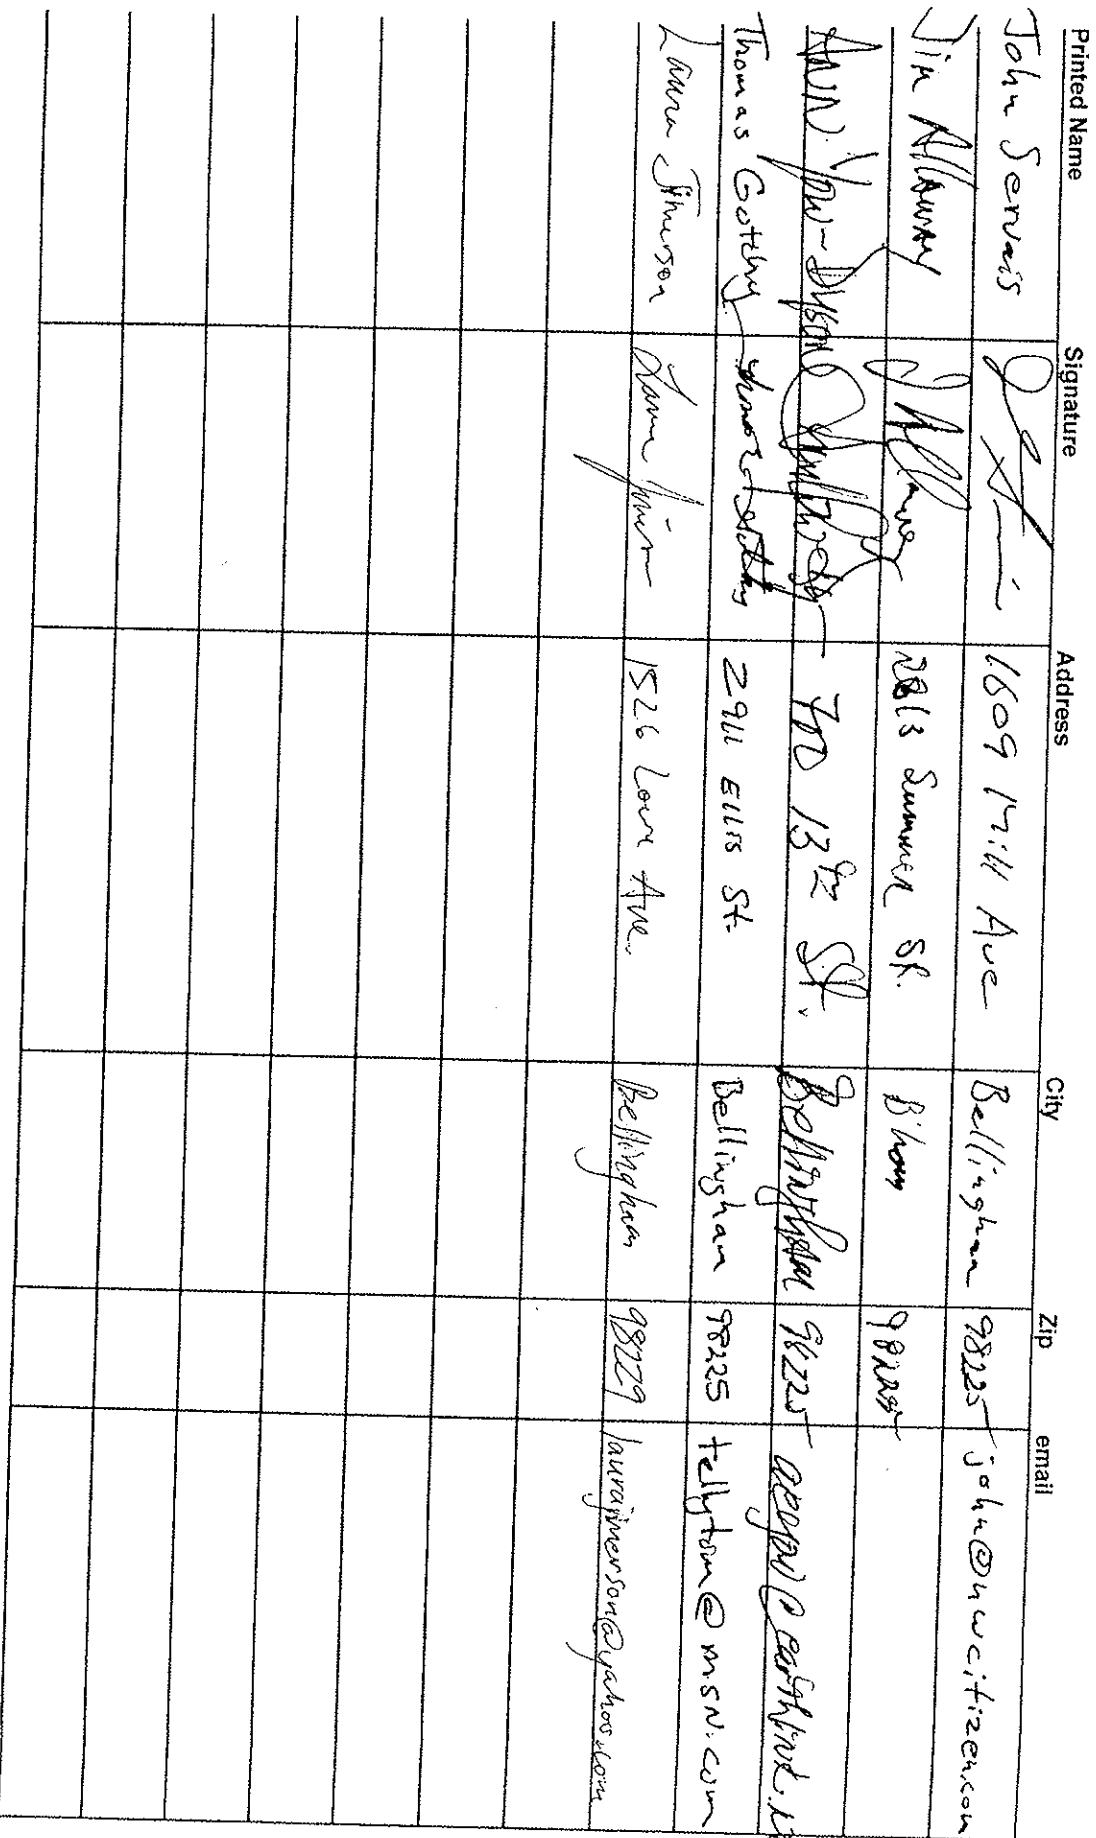 Printed Name Signature Address City Zip email
John Servais 1609 Mill Ave Bellingham 98225 john@nwcitizen.com
Jim Allaway 2813 Summer St. B'ham 98225
Ann Yow-Dyson 13th St. Bellingham 98225
Thomas Gotchy 2911 Ellis St. Bellingham 98225 tellytom@msn.com
Laura Jimerson 1526 Ave. Bellingham 98229 laurajimerson@yahoo.com